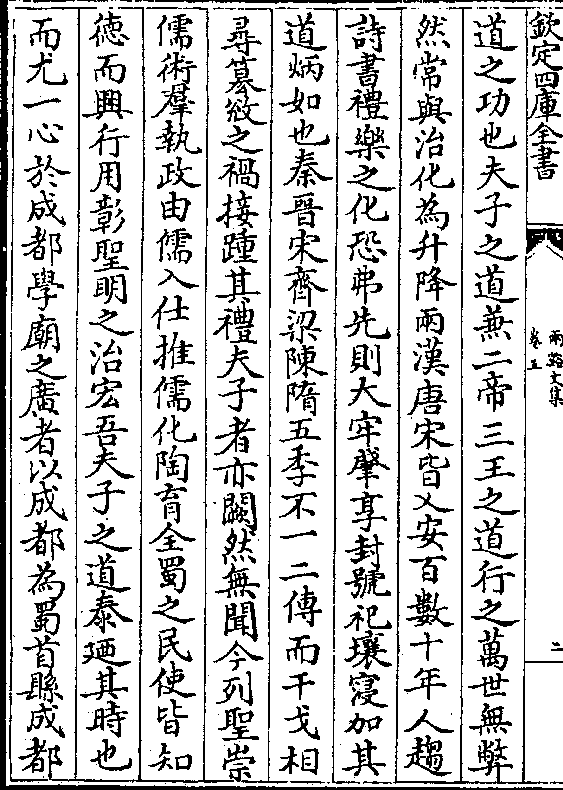 欽定四庫全書
兩谿文集
卷五
二
道之功也夫子之道兼二帝三王之道行之萬世無弊
然常與治化為升降兩漢唐宋皆乂安百數十年人趨
詩書禮樂之化恐弗先則大牢肇享封號祀壤寖加其
道炳如也秦晉宋齊梁陳隋五季不一二傳而干戈相
尋簒弑之禍接踵其禮夫子者亦闕然無聞今列聖崇
儒術羣執政由儒入仕推儒化陶育全蜀之民使皆知
徳而興行用彰聖明之治宏吾夫子之道泰廼其時也
而尤一心於成都學廟之廣者以成都為蜀首縣成都